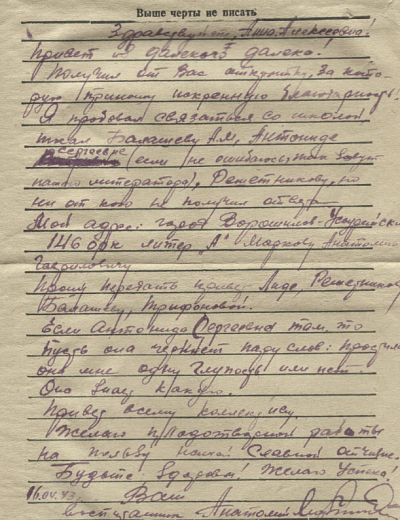 Выше черты не писать
Здравствуйте, Анна Алексеевна!
Привет из далекого далека!
Получил от Вас открытку, за кото-
рую приношу искреннюю благодарность!
Я пробовал связаться со школой
писал Балашеву А.И, Антониде
Сергеевне (если не ошибаюсь так зовут
нашего литератора), Решетникову, но
ни от кого не получил ответа.
Мой адрес: город Ворошилов-Уссурийский
146 орк литер "А" Маркову Анатолию
Гавриловичу
Прошу передать привет Лиде Решетниковой
Балашеву, Трифоновой.
Если Антонида Сергеевна там, то
пусть она черкнет пару слов: простила
она мне одну глупость или нет.
Она знает какую.
Привет всему коллективу.
Желаю плодотворной работы
на пользу нашей славной отчизне.
Будьте здоровы! Желаю успеха!
16.04.43. Ваш
воспитанник Анатолий